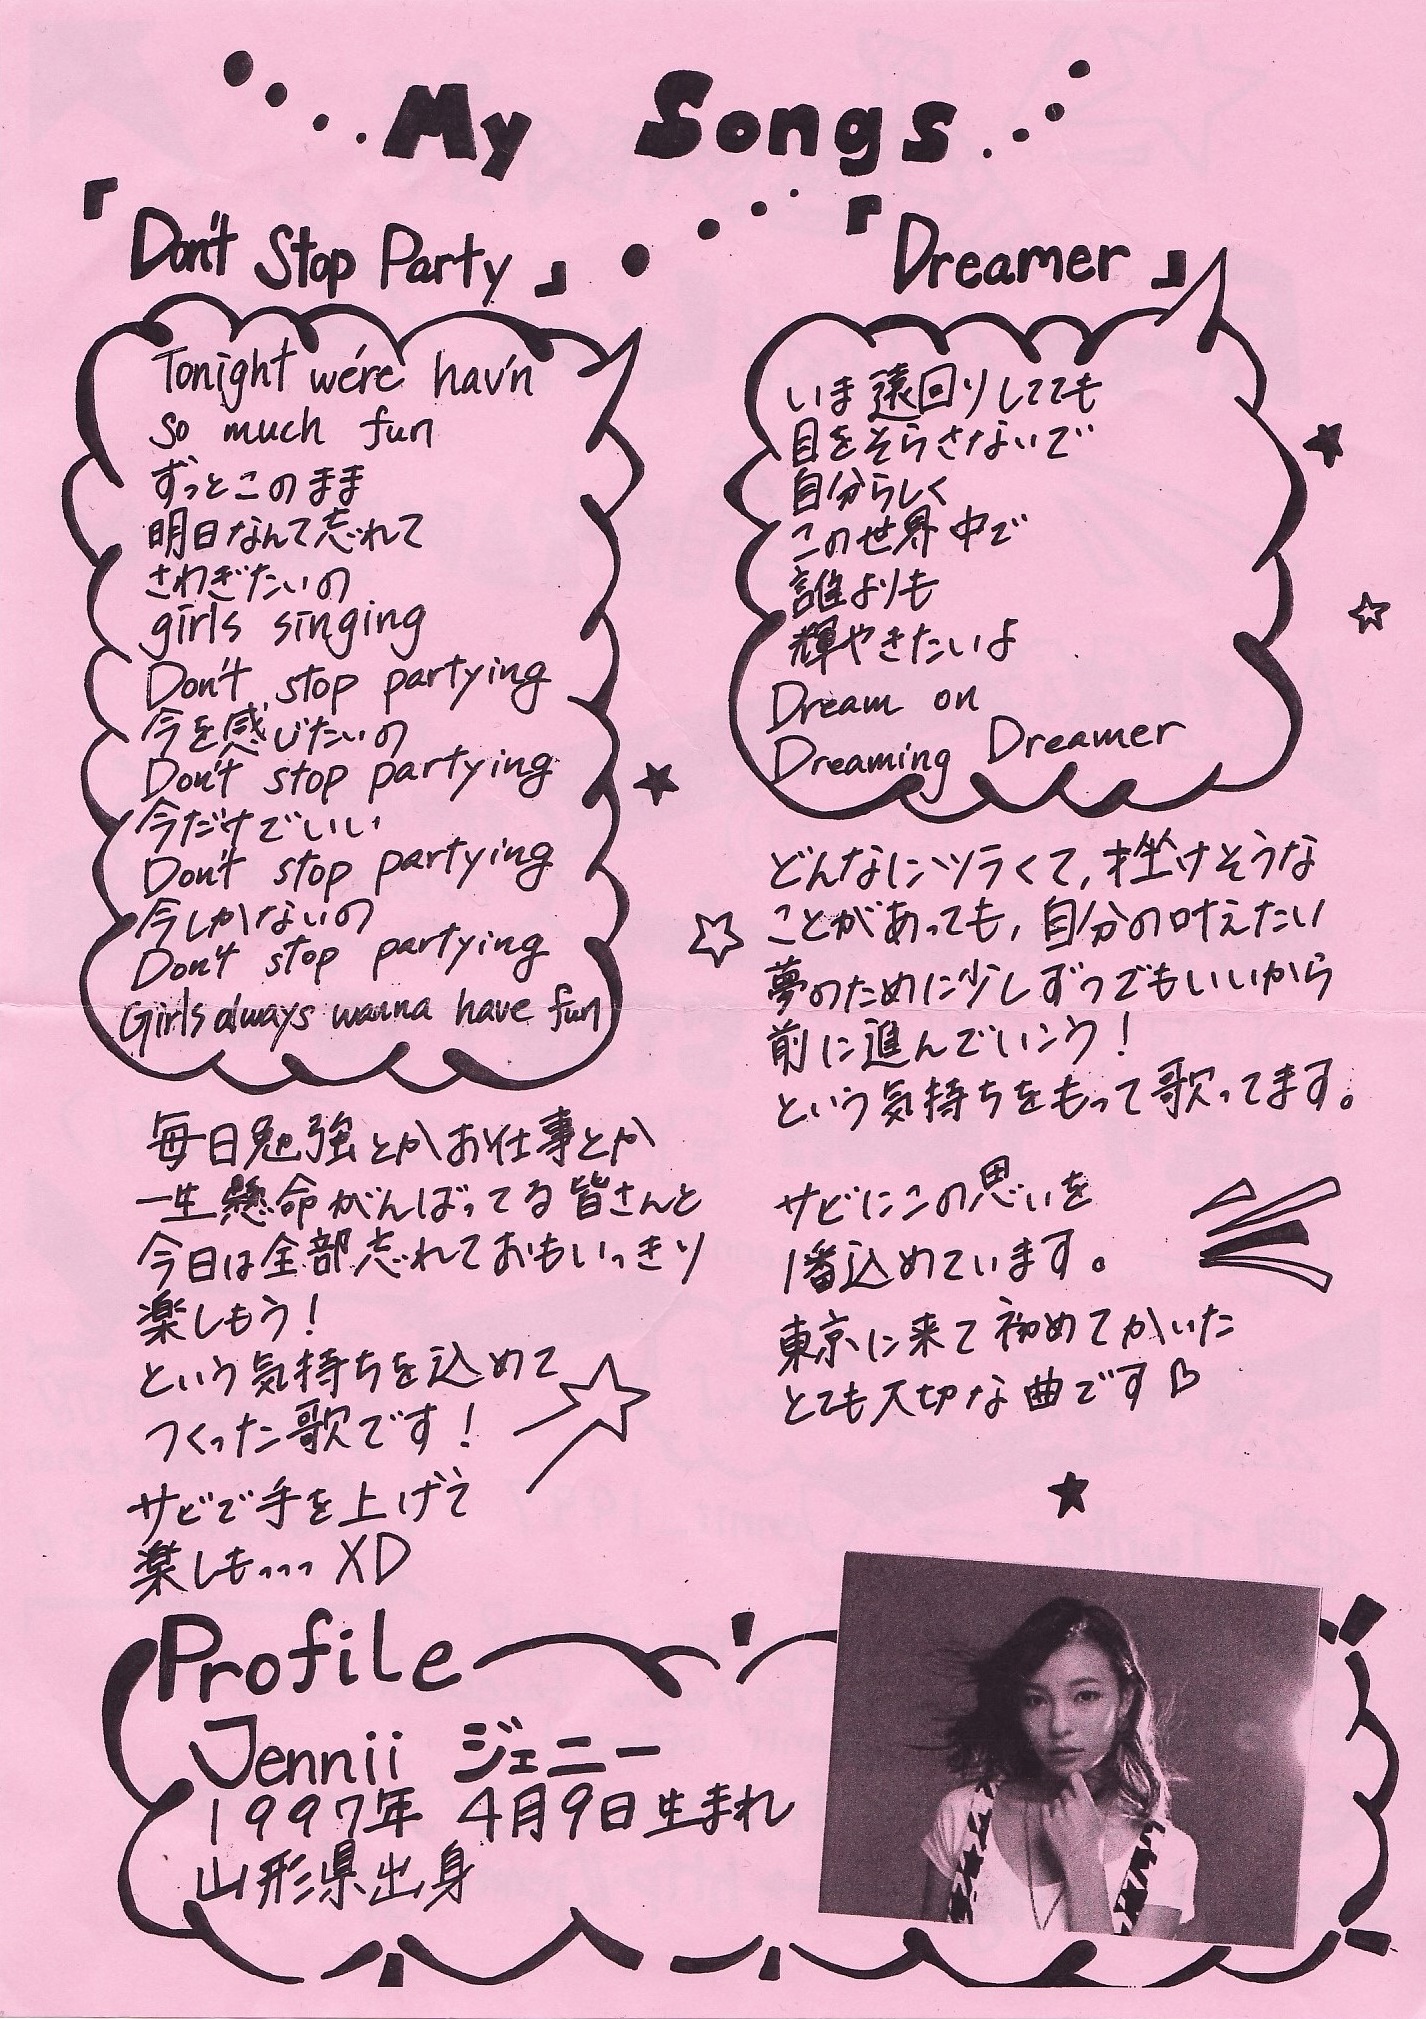 My Songs
『Don't Stop Party』
Tonight we're hav'n
so much fun
ずっとこのまま
明日なんて忘れて
さわぎたいの
girls singing
Don't stop partying
今を感じたいの
Don't stop partying
今だけでいい
Don't stop partying
今しかないの
Don't stop partying
Girls always wanna have fun
毎日勉強とかお仕事とか
一生懸命がんばってる皆さんと
今日は全部忘れておもいっきり
楽しもう！
という気持ちを込めて
つくった歌です！
サビで手を上げて
楽しも... XD
『Dreamer』
いま遠回りしてても
目をそらさないで
自分らしく
この世界中で
誰よりも
輝やきたいよ
Dream on
Dreaming Dreamer
どんなにツラくて, 挫けそうな
ことがあっても, 自分の叶えたい
夢のために少しずつでもいいから
前に進んでいこう！
という気持ちをもって歌ってます。
サビにこの思いを
1番込めています。
東京に来て初めてかいた
とても大切な曲です♡
Profile
Jennii ジェニー
1997年 4月9日生まれ
山形県出身